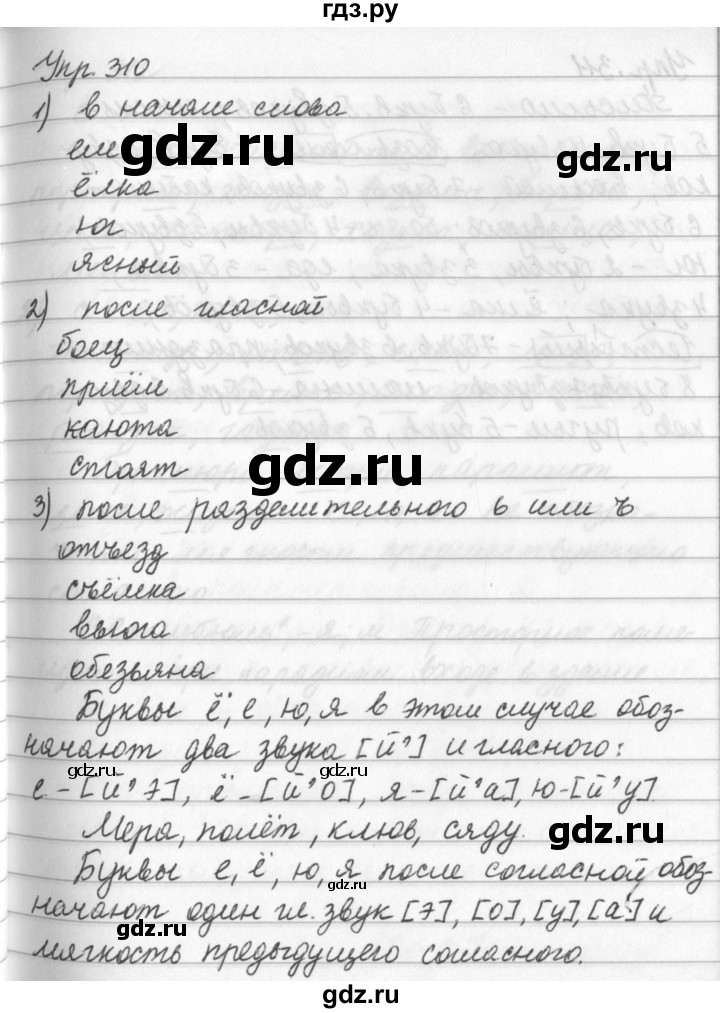 гдз.ру
Упр. 310
1) в начале слова
ем
ёлка
юг
ясный
2) после гласной
боец
приём
каюта
стоят
3) после разделительного ь или ъ
отъезд
съёмка
вьюга
обезьяна
Буквы ё, е, ю, я в этом случае обоз-
начают два звука [й'] и гласного:
е - [й'э], ё - [й'о], я - [й'а], ю - [й'у]
Мера, полёт, клюв, сяду.
Буквы е, ё, ю, я после согласной обоз-
начают один гл. звук [э], [о], [у], [а] и
мягкость предыдущего согласного.
gdz.ru
gdz.ru
gdz.ru
gdz.ru
gdz.ru
gdz.ru
gdz.ru
gdz.ru
gdz.ru